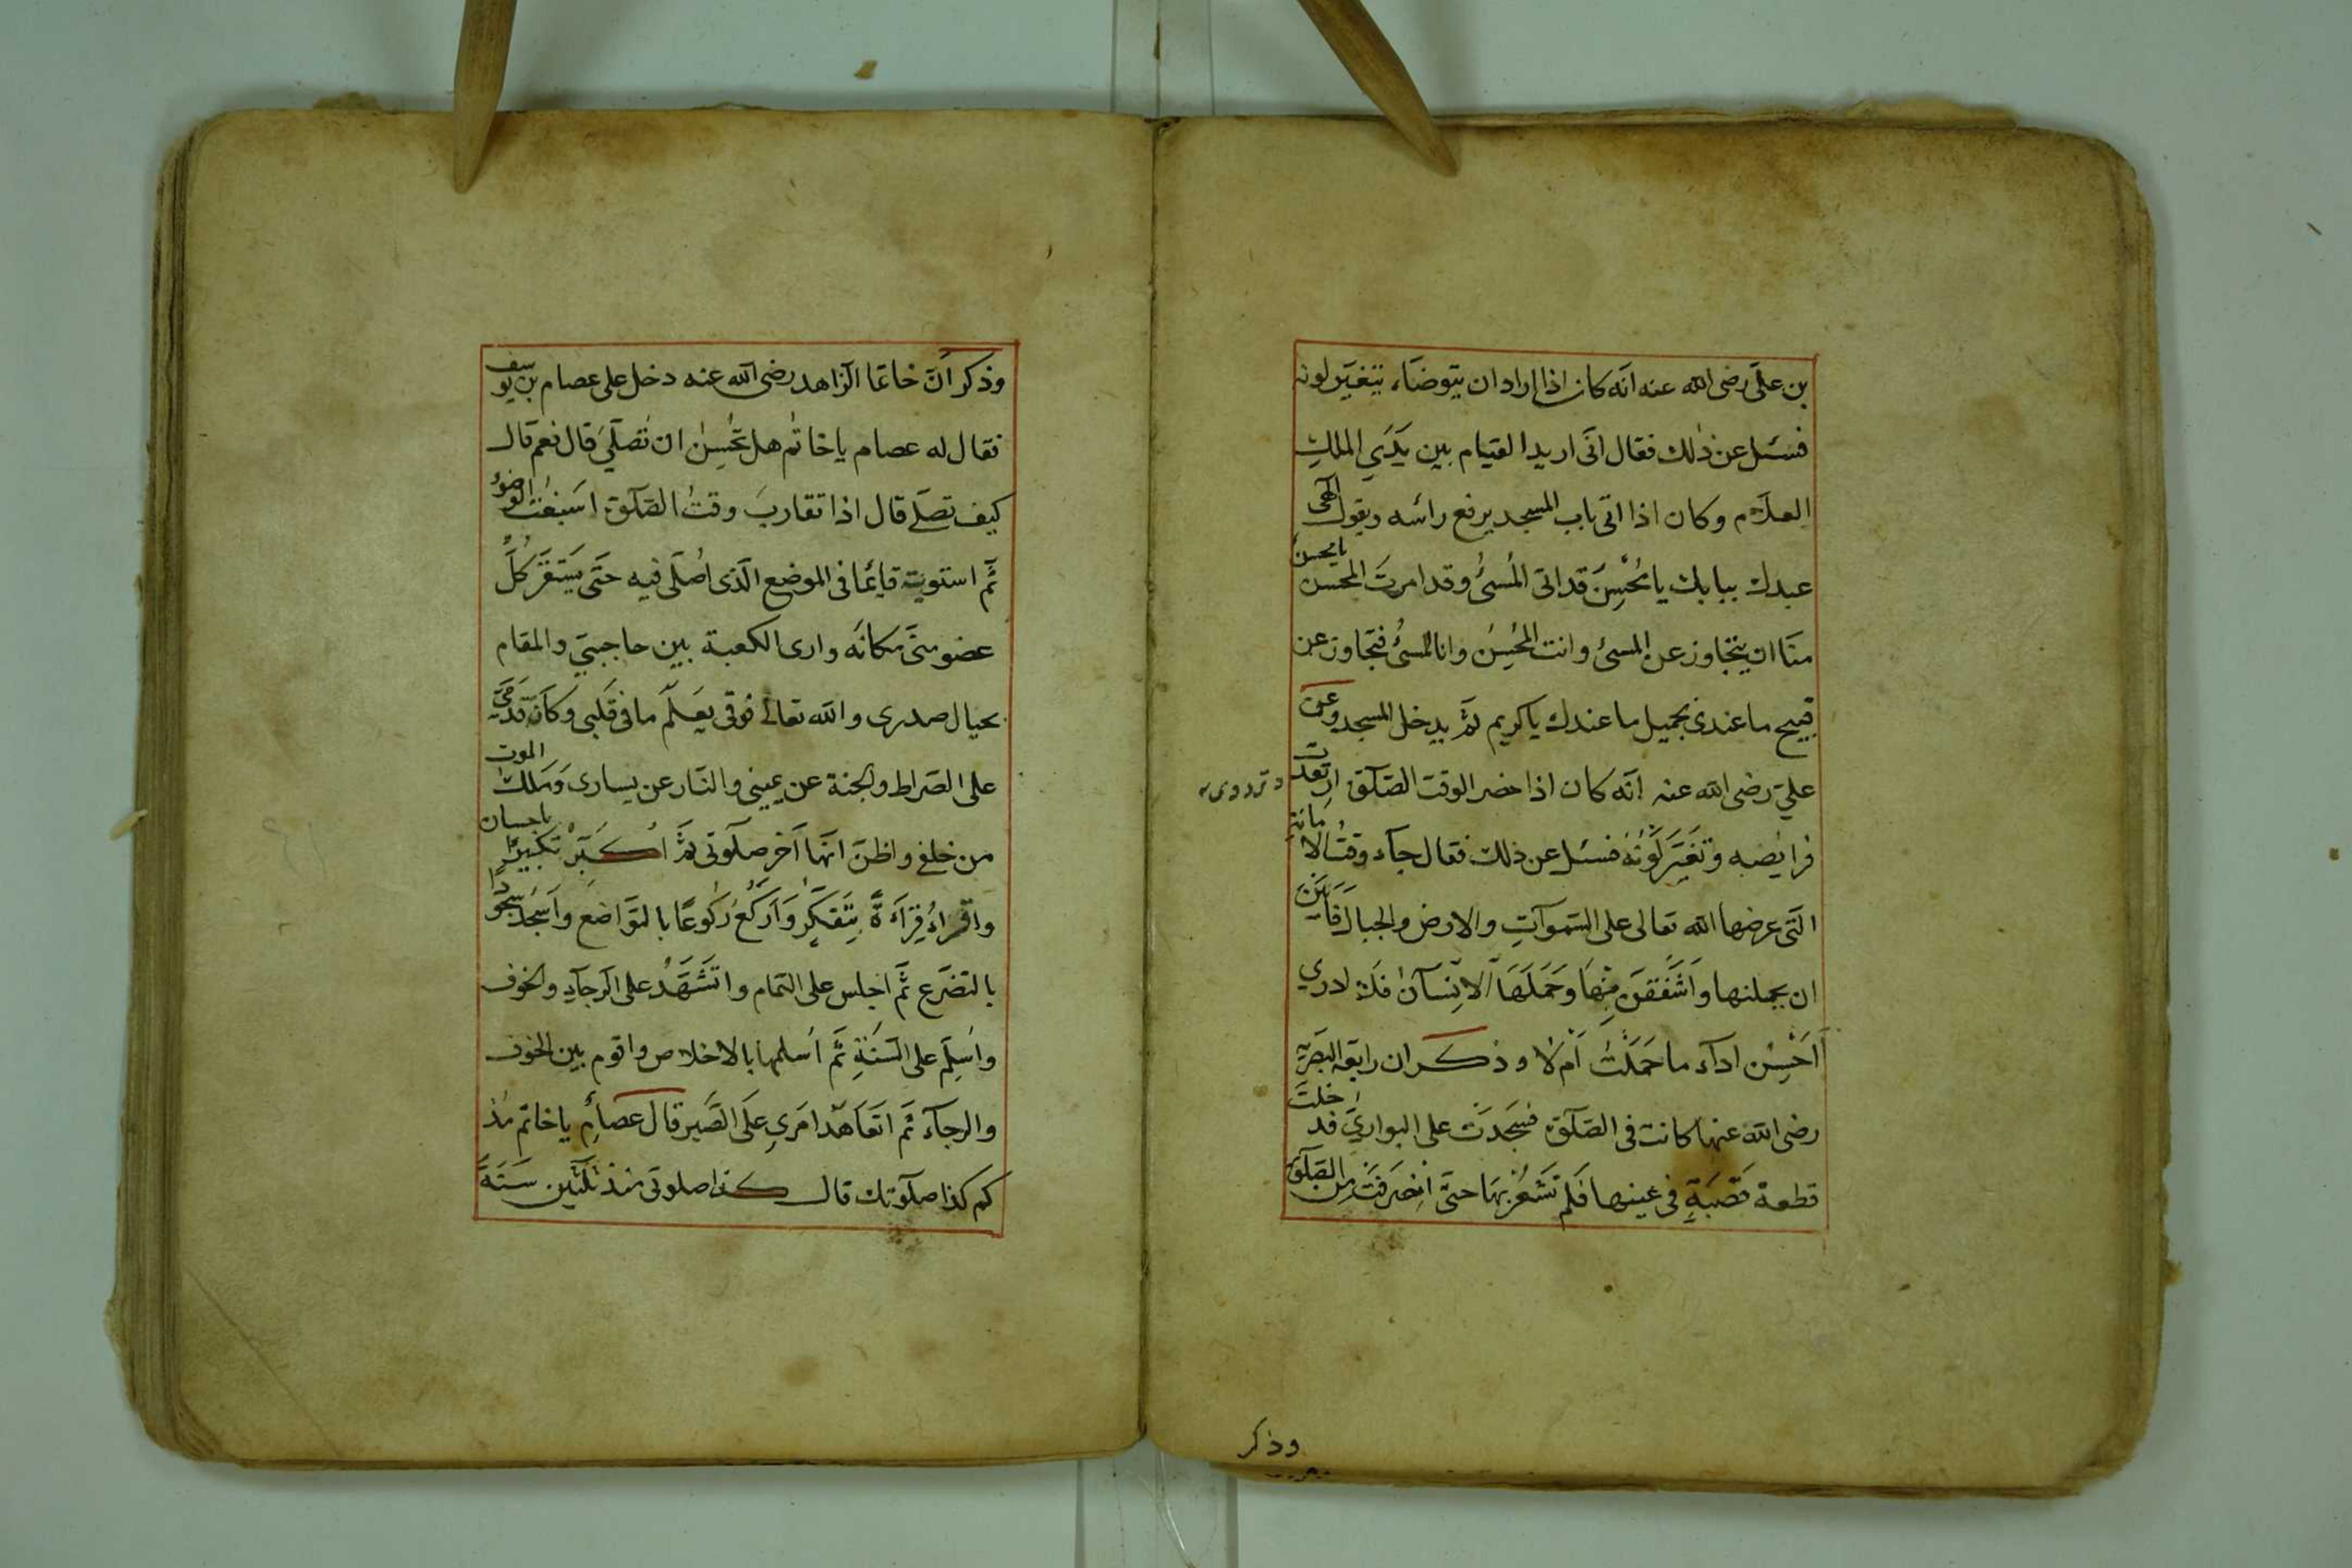 بن علىّ رضى الله عنه انّه كان اذا اراد ان يتوضّاء يتغيّر لونه
فسئل عن ذلك فقال انّى اريد القيام بين يَدَىِ الملكِ
العلّام وكان اذا اتى باب المسجد يرفع رائسه ويقول الٓهى
عبدك ببابك يا مُحْسِنَ قد اتى المُسئُ وقد امرتَ المحسن يا محسنُ
منّا ان يتجاوز عن المسئ وانت المُحْسِنُ وانا المسئُ فتجاوز عن
قبيح ما عندى بجميل ما عندك يا كريم ثمّ يدخل المسجد وعن
علىّ رضى الله عنه انّه كان اذا حضر الوقت الصّلٓوة ارتعدت
فرايضه وتغيَّر لَوْنُهُ فسئل عن ذلك فقال جآء وقتُ الامانةِ
الّتى عرضها الله تعالى على السّموآتِ والارض والجبال فَاَبَيْنَ
ان يحملنها واَشْفَقْنَ مِنْهَا وَحَمَلَهَا الاِنْسَانُ فَلا ادرى
ااَحْسِنُ ادآء ما حَمَلْتُ اَمْ لا وذكر ان رابعة البصريّة
رضى الله عنها كانت فى الصّلٓوة فسَجَدَتْ على البوارىّ فدخلتْ
قطعة قَصَبَةٍ فى عينها فَلم تَشْعُرْ بِهَا حتّى اِنْصَرَفَتْ مِنَ الصّلٓوة
وذكر
وذكر انّ خاتمًا الزاهد رضى الله عنه دخل على عصام بن يوسف
فقال له عصام يا خاتم هل تُحْسِنُ ان تُصلّىَ قال نعم قال
كيف تصلّى قال اذا تقاربَ وقتُ الصّلٓوة اسبغتُ الوضوُء
ثمّ استويت قايمًا فى الموضع الّذى اُصلّى فيه حتّى يَسْتَقِرَّ كلُّ
عضو منّى مكانَه وارى الكعبة بين حاجبىّ والمقام
بحيال صدرى والله تعالى فوقى يَعْلَمُ ما فى قلبى وكانّ قَدَمَىَّ
على الصّراط والجنة عن يمينى والنّار عن يسارى ومَلَكُ الموت
من خلفى واظنّ انّها آخر صلٓوتى ثمّ اُكَبِّرُ تكبيرًا باحسان
واقراءُ قِرَاءَةً بِتَفَكُّرٍ وَاَرْكَعُ رُكوعًا بالتّواضع واَسْجُد سجودًا
بالتضرّع ثمّ اجلس على التمام واتَشَهَّدُ على الرّجآءِ والخوف
واُسَلِّم على السّنّةِ ثمّ اُسلمها بالاخلاص واقوم بين الخوف
والرجآء ثمّ اتعاهد امرى على الصّبر قال عصامُ يا خاتم منذ
كم كذا صلٓوتك قال كذا صلوتى منذ ثلثين سنةً